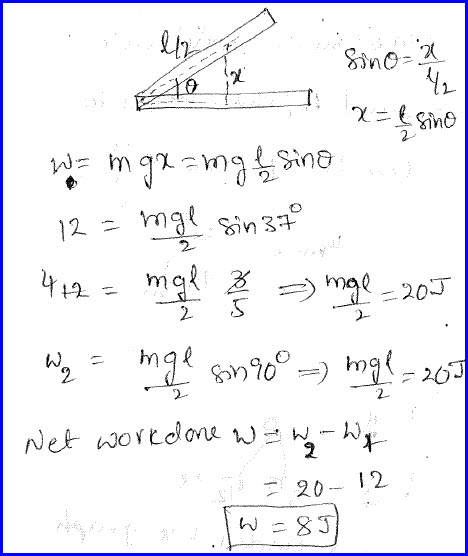 l/2
θ
x
sinθ = x / l/2
x = l/2 sinθ
W = mgx = mg l/2 sinθ
12 = mgl/2 sin37°
4 12 = mgl/2 3/5 ⇒ mgl/2 = 20J
W2 = mgl/2 sin90° ⇒ mgl/2 = 20J
Net workdone W = W2 - W1
= 20 - 12
W = 8J